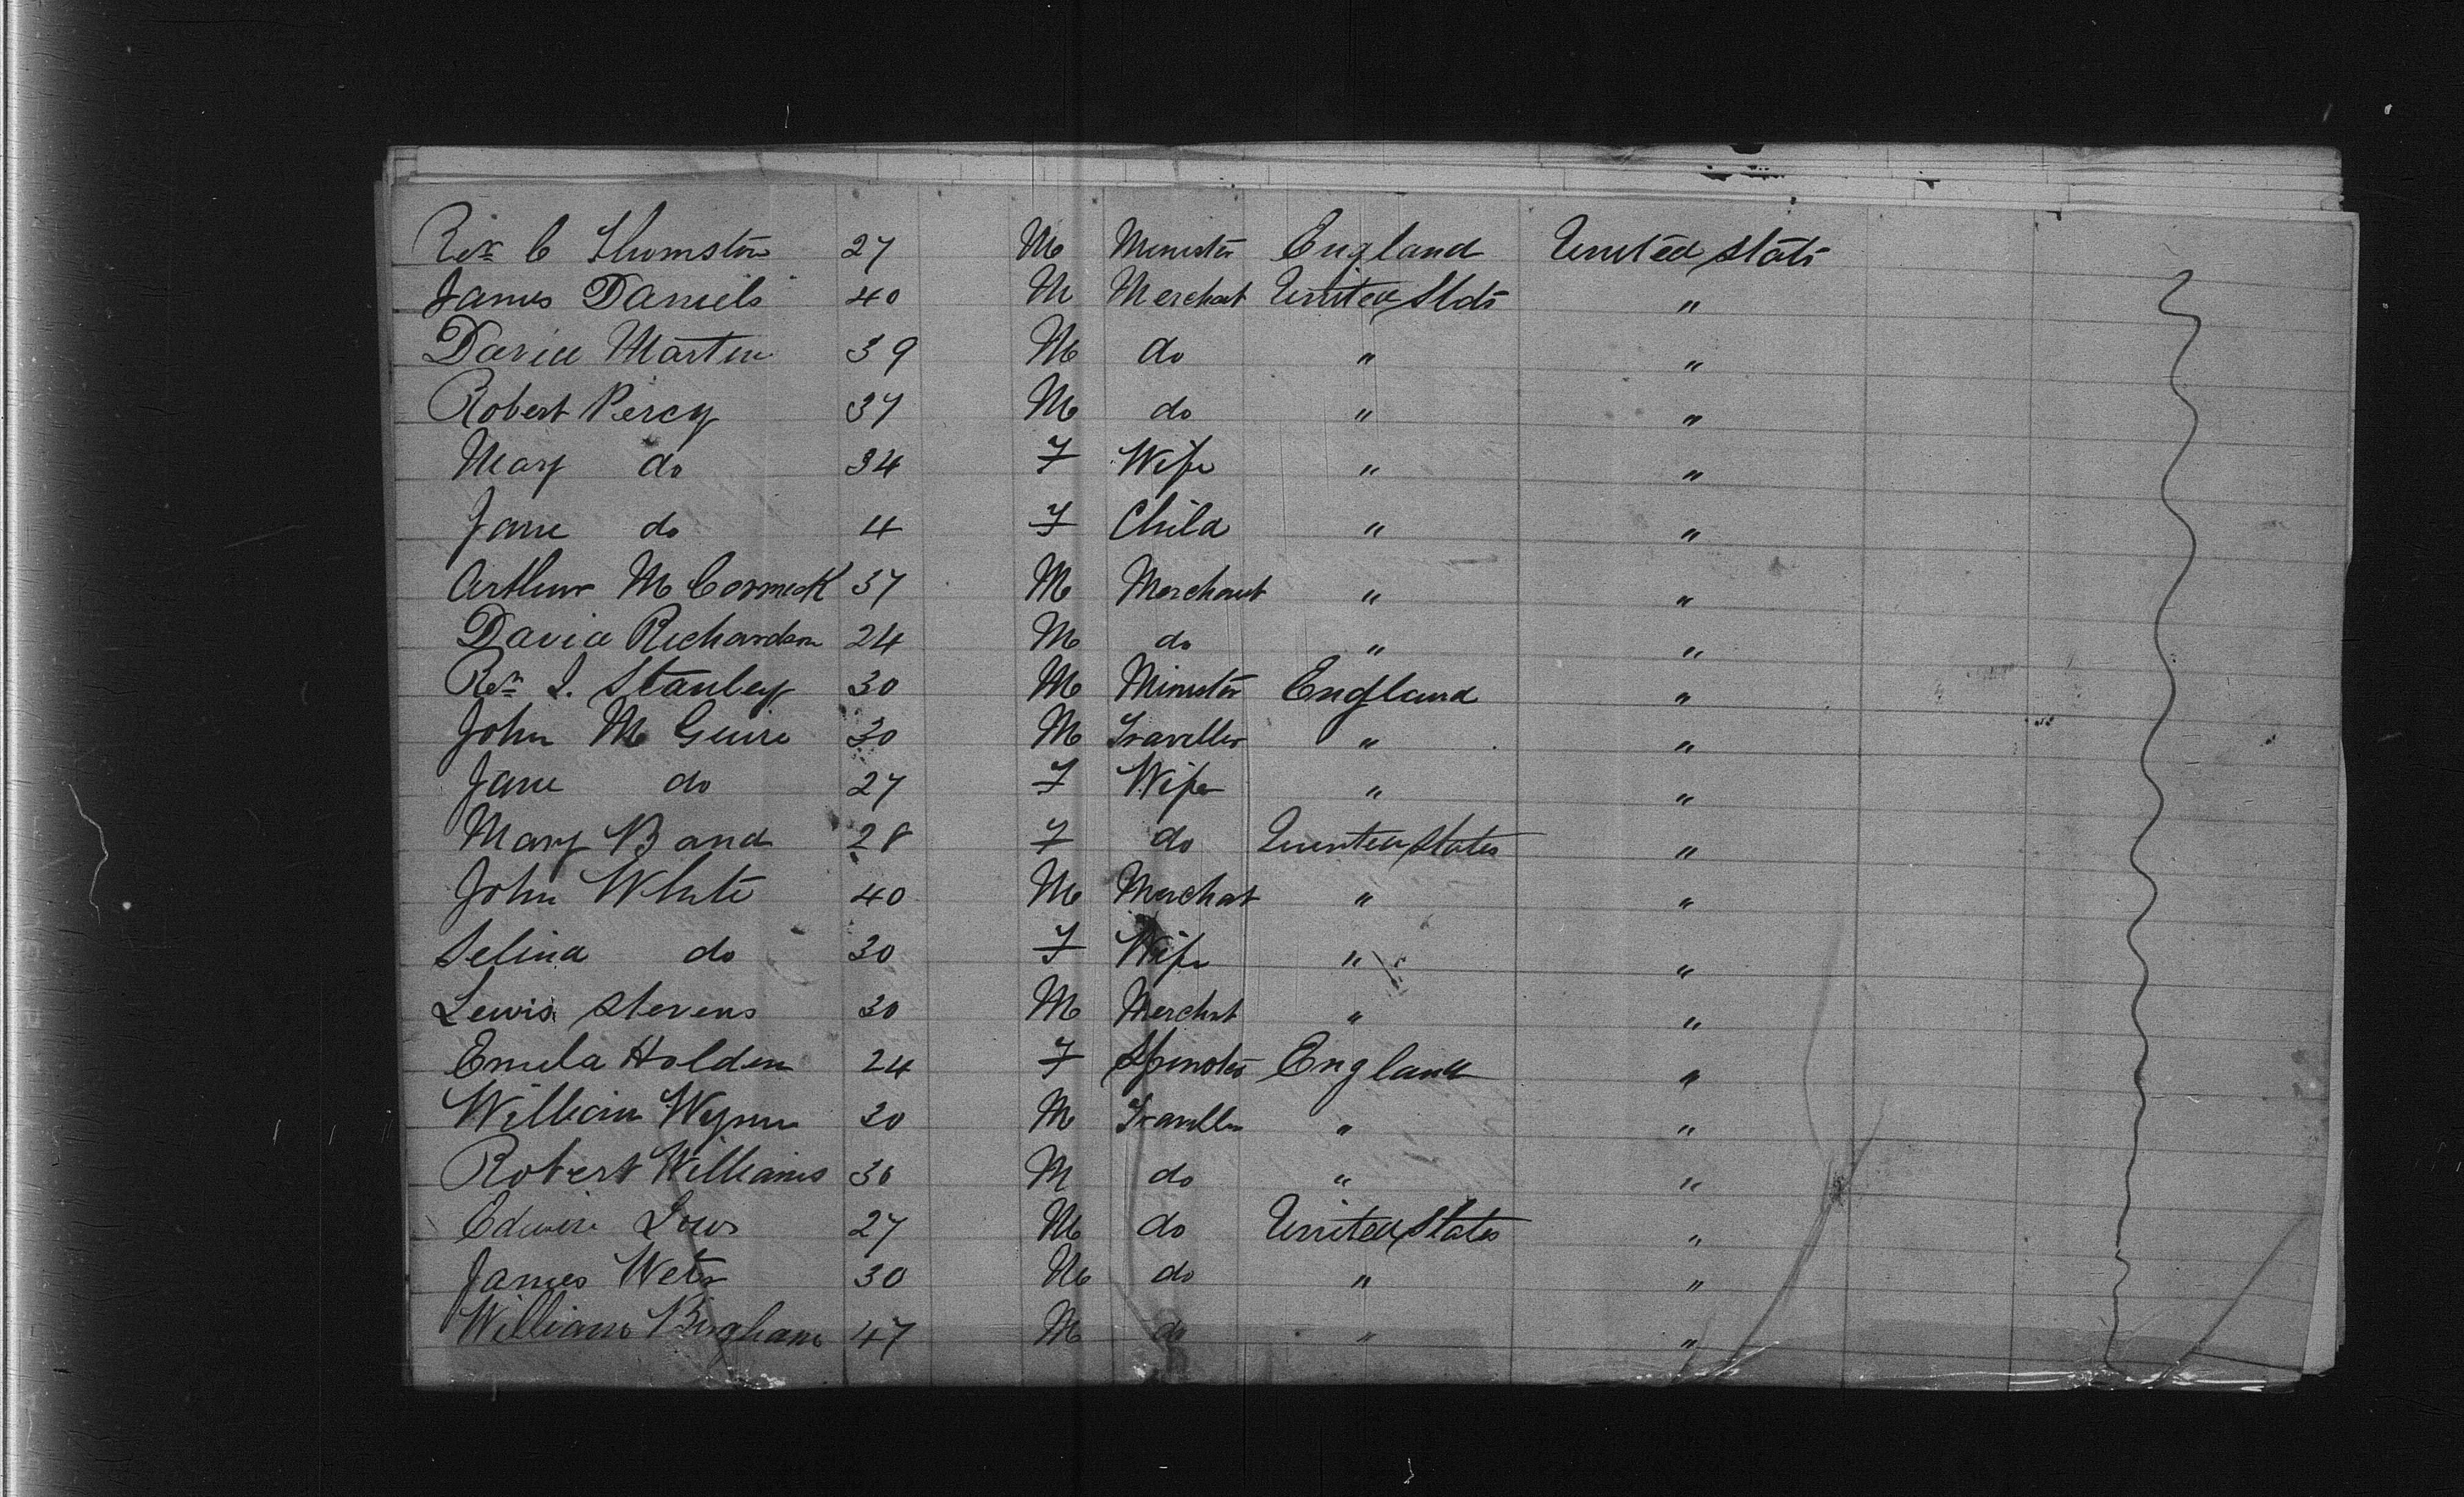 Revd C Thomston 27 M Minister England United States
James Daniels 40 M Merchant United States "
David Martin 39 M do " "
Robert Percy 37 M do " "
Mary do 34 F Wife " "
Jane do 4 F Child " "
Arthur McCormeck 37 M Merchant " "
David Richardson 24 M do " "
Revd J. Stanley 30 M Minister England "
John McGuire 30 M Traveller " "
Jane do 27 F Wife " "
Mary Band 28 F do United States "
John White 40 M Merchant " "
Selina do 30 F Wife " "
Lewis Stevens 30 M Merchant " "
Emela Holden 24 F Spinster England "
William Wynn 30 M Traveller " "
Robert Williams 30 M do " "
Edwin 27 M do United States "
James 30 M do " "
William Bingham 47 M do " "